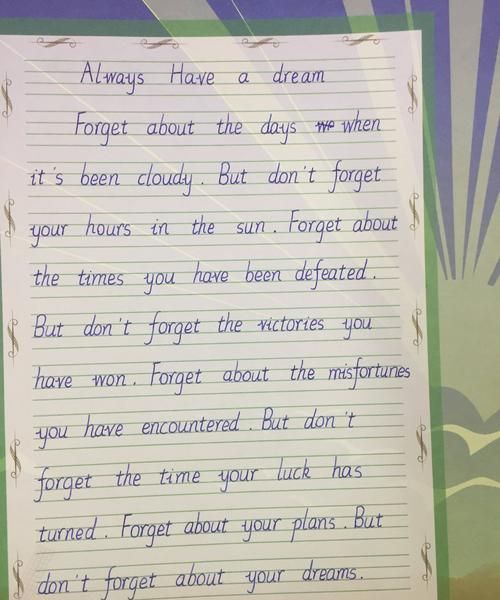 Always Have a dream
Forget about the days we when
it's been cloudy. But don't forget
your hours in the sun. Forget about
the times you have been defeated.
But don't forget the victories you
have won. Forget about the misfortunes
you have encountered. But don't
forget the time your luck has
turned. Forget about your plans. But
don't forget about your dreams.